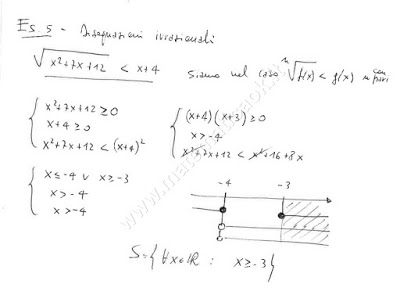 Es. 5 - Disequazioni irrazionali
√x²+7x+12 < x+4 Siamo nel caso ⁿ√f(x) < g(x) n con pari
{ x²+7x+12 ≥ 0
x+4 ≥ 0
x²+7x+12 < (x+4)²
{ (x+4)(x+3) ≥ 0
x > -4
x²+7x+12 < x²+16+8x
{ x ≤ -4 ∨ x ≥ -3
x > -4
x > -4
-4 -3
S = { ∀x∈ℝ : x ≥ -3 }